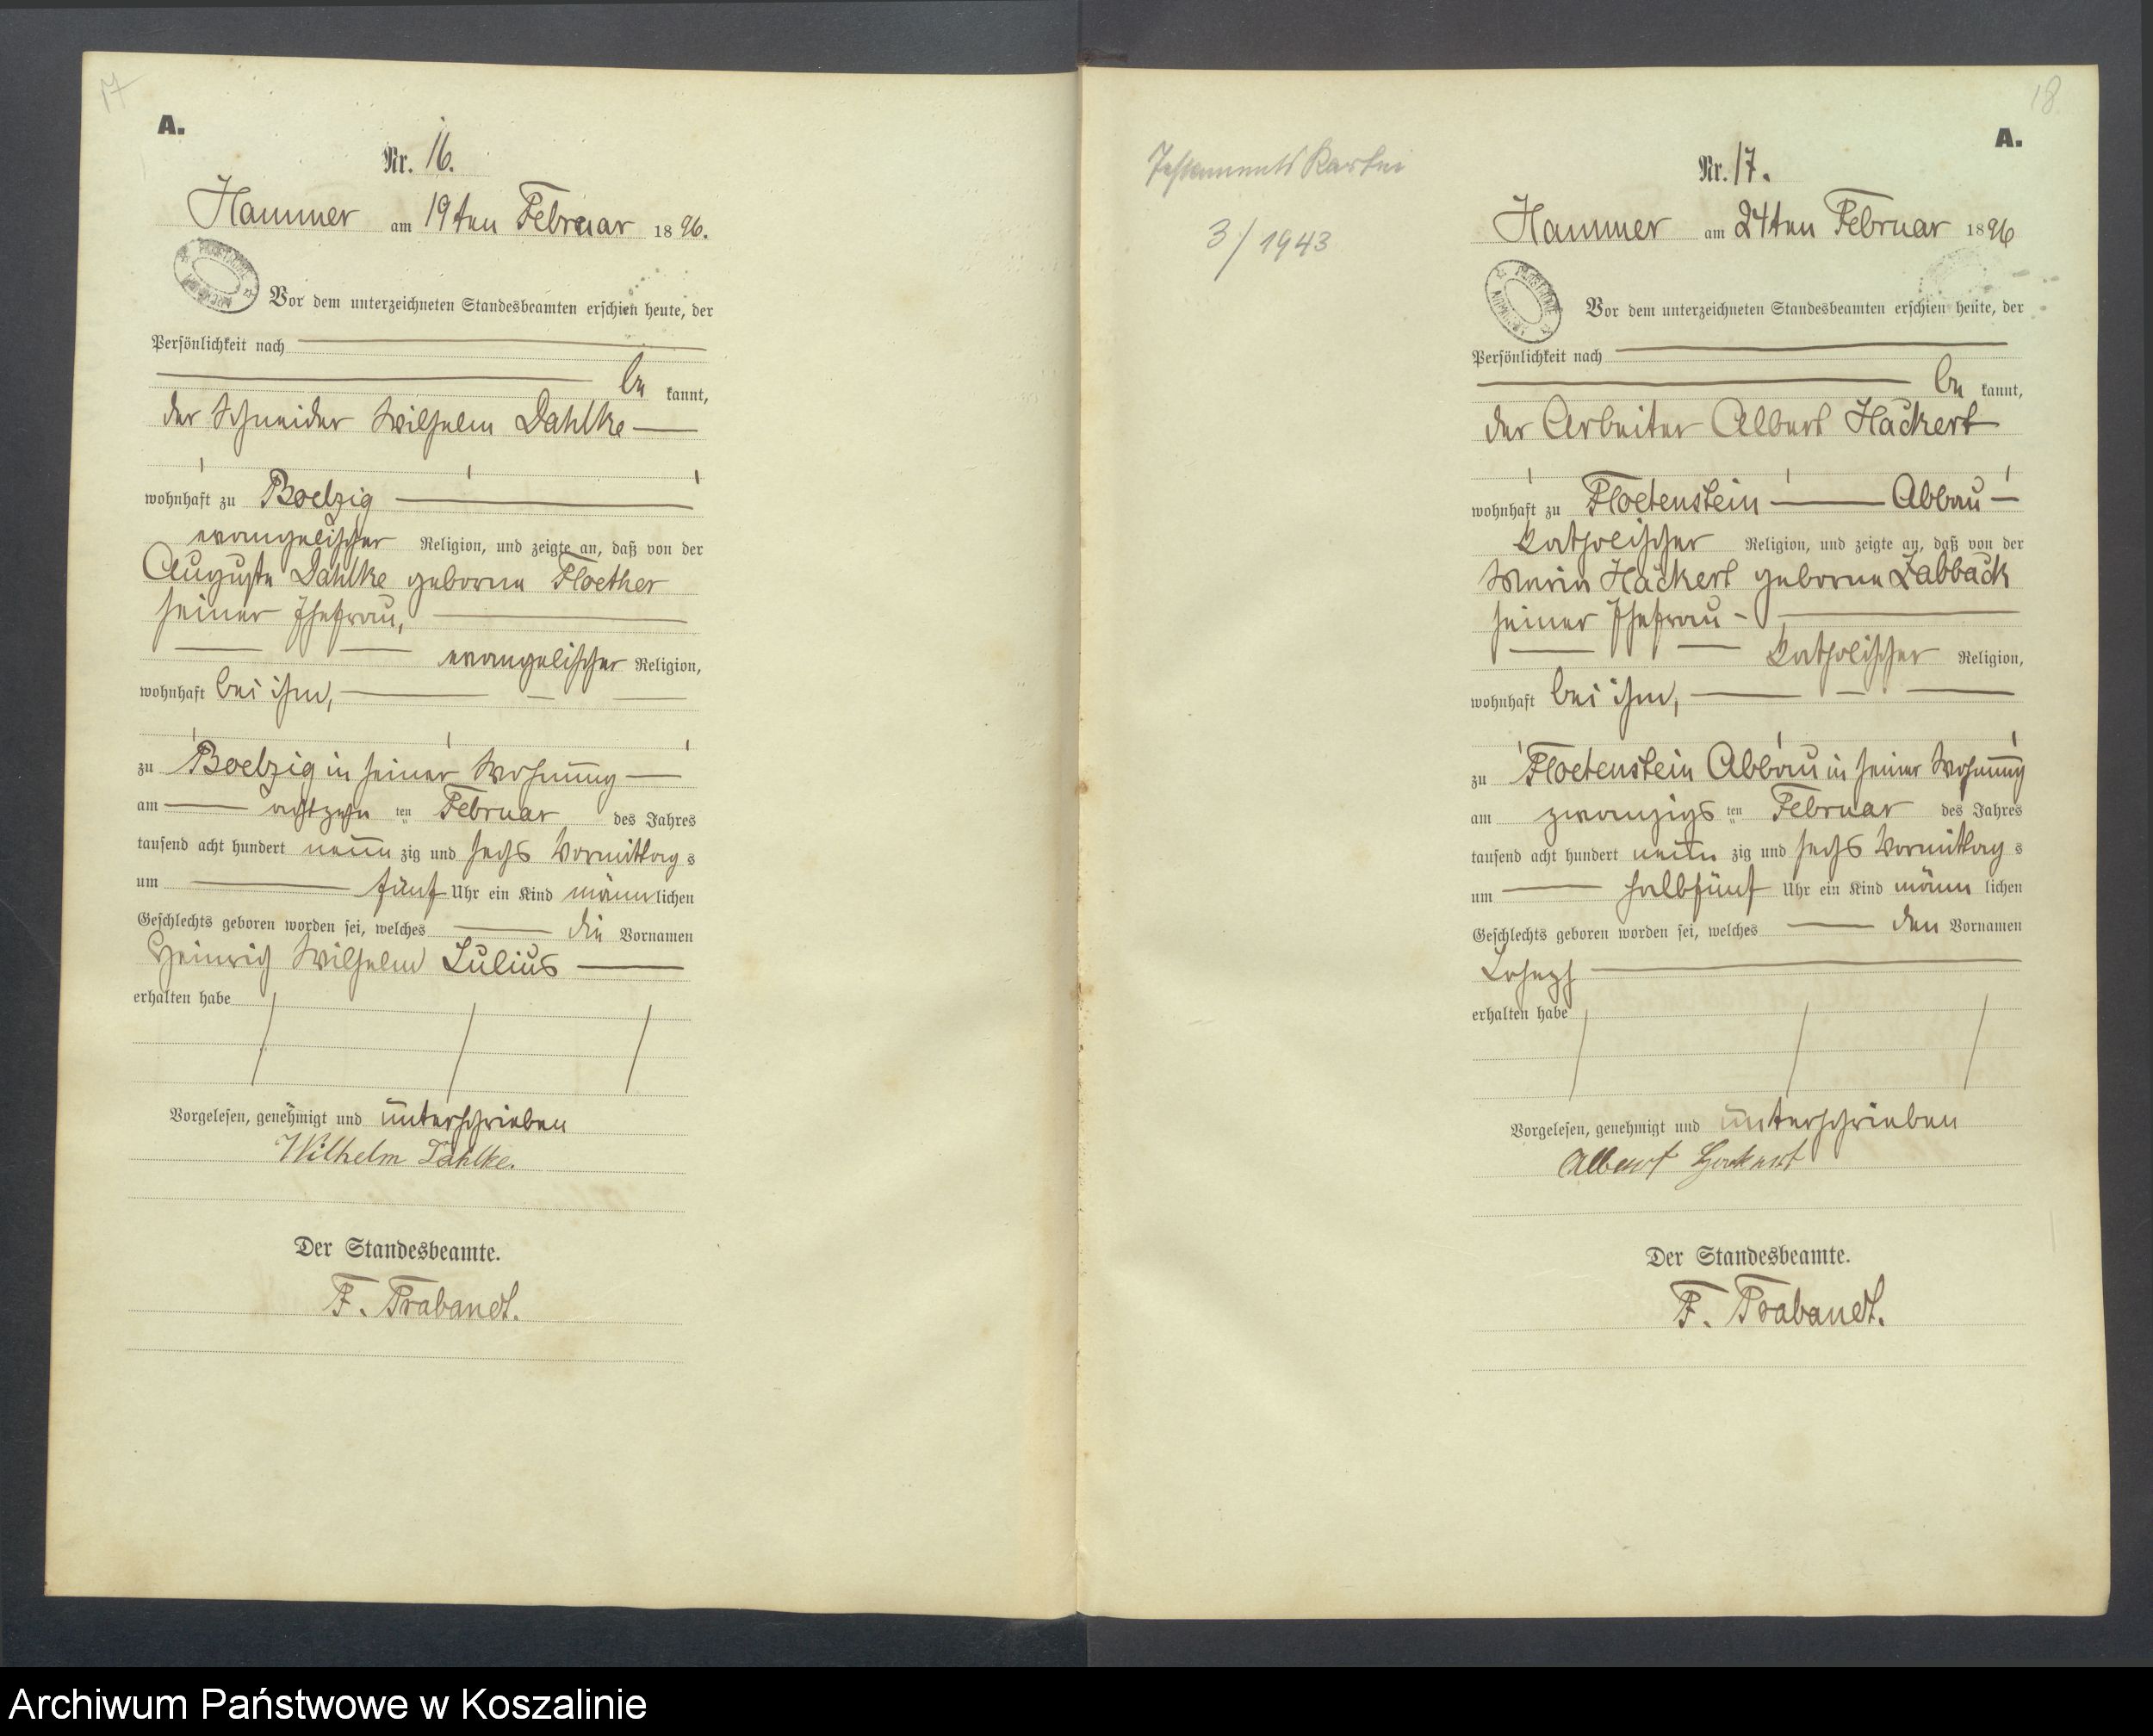 17
A.
Nr. 16.
Hammer am 19ten Februar 1896.
Vor dem unterzeichneten Standesbeamten erschien heute, der
Persönlichkeit nach
be kannt,
der Schneider Wilhelm Dahlke
wohnhaft zu Boelzig
evangelischer Religion, und zeigte an, daß von der
Auguste Dahlke geborne Floether
seiner Ehefrau,
evangelischer Religion,
wohnhaft bei ihm,
zu Boelzig in seiner Wohnung
am achtzehn ten Februar des Jahres
tausend acht hundert neun zig und sechs Vormittag s
um fünf Uhr ein Kind männ lichen
Geschlechts geboren worden sei, welches die Vornamen
Heinrich Wilhelm Julius
erhalten habe
Vorgelesen, genehmigt und unterschrieben
Wilhelm Dahlke.
Der Standesbeamte.
F. Trabandt.
18
Testaments Kartei
3/1943
A.
Nr. 17.
Hammer am 24ten Februar 1896
Vor dem unterzeichneten Standesbeamten erschien heute, der
Persönlichkeit nach
be kannt,
der Arbeiter Albert Hackert
wohnhaft zu Floetenstein Abbau
katholischer Religion, und zeigte an, daß von der
Maria Hackert geborne Jabback
seiner Ehefrau
katholischer Religion,
wohnhaft bei ihm,
zu Floetenstein Abbau in seiner Wohnung
am zwanzigs ten Februar des Jahres
tausend acht hundert neun zig und sechs Vormittag s
um halbfünf Uhr ein Kind männ lichen
Geschlechts geboren worden sei, welches den Vornamen
Joseph
erhalten habe
Vorgelesen, genehmigt und unterschrieben
Albert Hackert
Der Standesbeamte.
F. Trabandt.
Archiwum Państwowe w Koszalinie